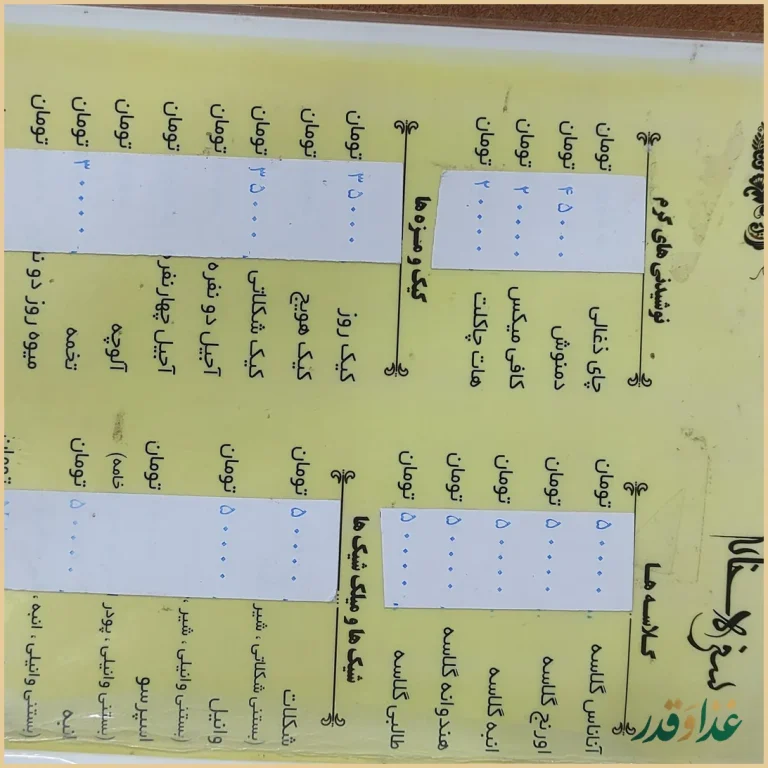 سفره خانه
نوشیدنی های گرم
چای ذغالی تومان
دمنوش ۴۵۰۰۰ تومان
کافی میکس ۲۰۰۰۰ تومان
هات چاکلت ۲۰۰۰۰ تومان
کیک و مزه ها
کیک روز ۳۵۰۰۰ تومان
کیک هویج تومان
کیک شکلاتی ۳۵۰۰۰ تومان
آجیل دو نفره تومان
آجیل چهار نفره تومان
آلوچه تومان
تخمه ۳۰۰۰۰ تومان
میوه روز دو تومان
گلاسه ها
آناناس گلاسه ۵۰۰۰۰ تومان
اورنج گلاسه ۵۰۰۰۰ تومان
انبه گلاسه ۵۰۰۰۰ تومان
هندوانه گلاسه ۵۰۰۰۰ تومان
طالبی گلاسه ۵۰۰۰۰ تومان
شیک ها و میلک شیک ها
شکلات ۵۰۰۰۰ تومان
(بستنی شکلاتی ، شیر
وانیل ۵۰۰۰۰ تومان
(بستنی وانیلی ، شیر ،
اسپرسو تومان
(بستنی وانیلی ، پودر خامه)
انبه ۵۰۰۰۰ تومان
(بستنی وانیلی ، انبه ،
غذا و قدر